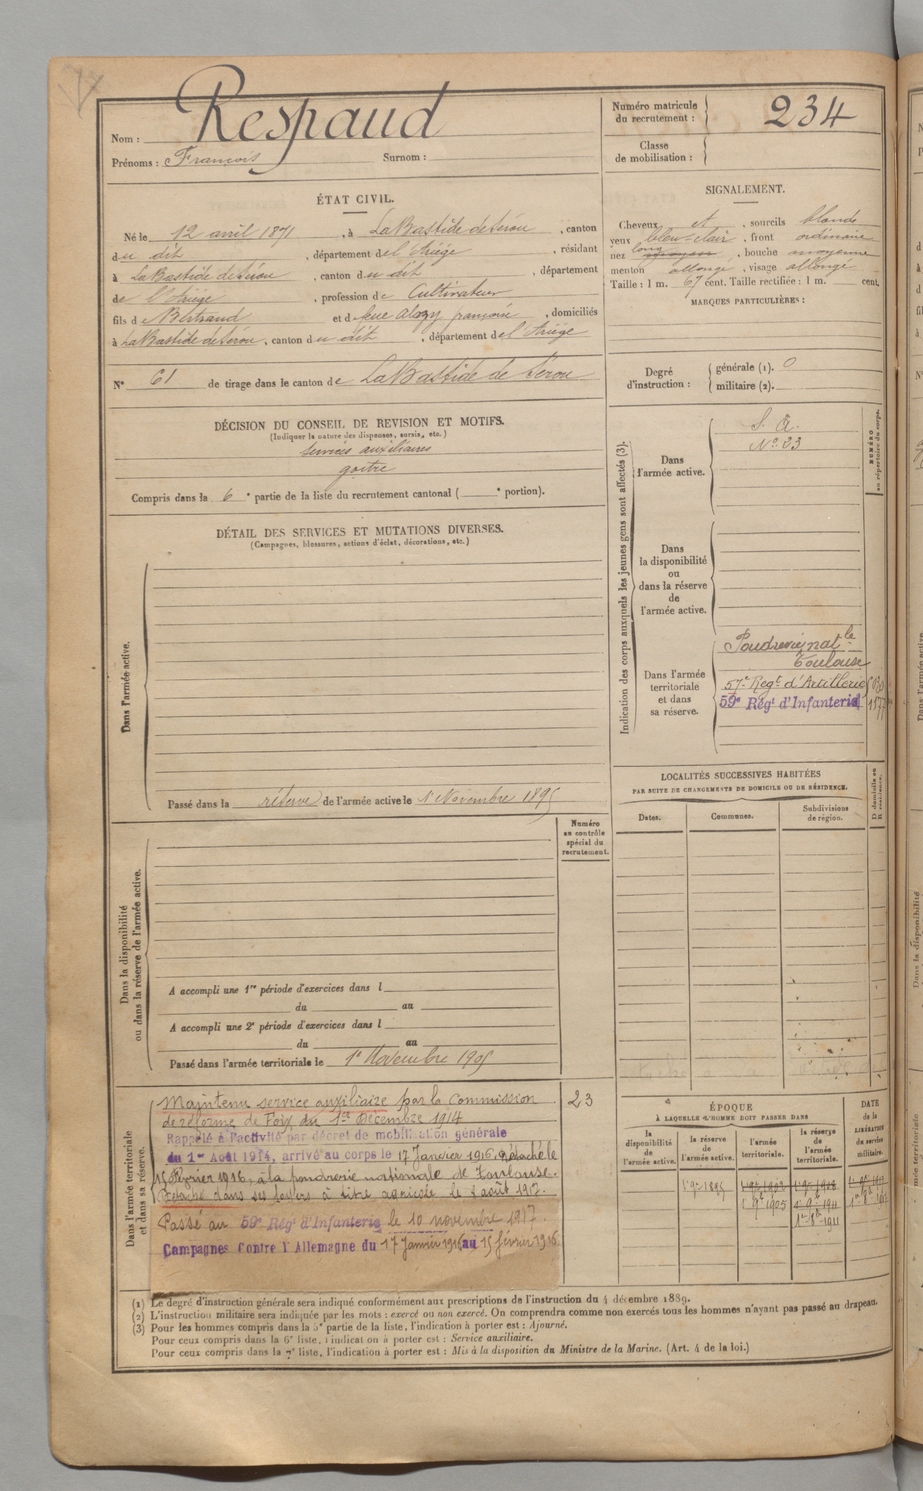 Nom : Respaud
Prénoms : François Surnom :
Numéro matricule du recrutement : 234
Classe de mobilisation :
ÉTAT CIVIL.
Né le 12 avril 1871, à LaBastide de Sérou, canton
du dit, département de l'Ariège, résidant
à LaBastide de Sérou, canton du dit, département
de l'Ariège, profession de Cultivateur
fils de Bertrand et de françoise, domiciliés
à LaBastide de Sérou, canton du dit, département de l'Ariège
N° 61 de tirage dans le canton de LaBastide de Sérou
SIGNALEMENT.
Cheveux et, sourcils blonds
yeux bleu clair, front ordinaire
nez long, bouche moyenne
menton allongé, visage allongé
Taille : 1 m. 67 cent. Taille rectifiée : 1 m. cent.
MARQUES PARTICULIÈRES :
Degré d'instruction : générale (1). 0
militaire (2).
DÉCISION DU CONSEIL DE REVISION ET MOTIFS.
(Indiquer la nature des dispenses, sursis, etc.)
Services auxiliaires
goitre
Compris dans la 6e partie de la liste du recrutement cantonal ( e portion).
DÉTAIL DES SERVICES ET MUTATIONS DIVERSES.
(Campagnes, blessures, actions d'éclat, décorations, etc.)
Dans l'armée active.
Passé dans la réserve de l'armée active le 1 Novembre 1895
Indication des corps auxquels les jeunes gens sont affectés (3).
Dans l'armée active.
S. A.
N° 23
NUMÉRO au répertoire du corps.
Dans la disponibilité ou dans la réserve de l'armée active.
Dans l'armée territoriale et dans sa réserve.
Poudrerie natle
Toulouse
57e Régt d'Artillerie
59e Régt d'Infanterie
LOCALITÉS SUCCESSIVES HABITÉES
PAR SUITE DE CHANGEMENTS DE DOMICILE OU DE RÉSIDENCE.
Dates. Communes. Subdivisions de région. D. domicile ou R. résidence.
Numéro au contrôle spécial du recrutement.
Dans la disponibilité ou dans la réserve de l'armée active.
A accompli une 1re période d'exercices dans l
du au
A accompli une 2e période d'exercices dans l
du au
Passé dans l'armée territoriale le 1er Novembre 1905
Dans l'armée territoriale et dans sa réserve.
23
Maintenu service auxiliaire par la Commission
de réforme de Foix du 1er Décembre 1914
Rappelé à l'activité par décret de mobilisation générale
du 1er Août 1914, arrivé au corps le 17 Janvier 1916. Détaché le
15 Février 1916, à la poudrerie nationale de Toulouse.
Détaché dans ses foyers à titre agricole le 2 août 1917.
Passé au 59e Régt d'Infanterie le 10 novembre 1917.
Campagnes Contre l'Allemagne du 17 Janvier 1916 au 15 février 1916
ÉPOQUE
À LAQUELLE L'HOMME DOIT PASSER DANS
la disponibilité de l'armée active.
la réserve de l'armée active.
l'armée territoriale.
la réserve de l'armée territoriale.
DATE de la LIBÉRATION du service militaire.
(1) Le degré d'instruction générale sera indiqué conformément aux prescriptions de l'instruction du 4 décembre 1889.
(2) L'instruction militaire sera indiquée par les mots : exercé ou non exercé. On comprendra comme non exercés tous les hommes n'ayant pas passé au drapeau.
(3) Pour les hommes compris dans la 5e partie de la liste, l'indication à porter est : Ajourné.
Pour ceux compris dans la 6e liste, l'indication à porter est : Service auxiliaire.
Pour ceux compris dans la 7e liste, l'indication à porter est : Mis à la disposition du Ministre de la Marine. (Art. 4 de la loi.)